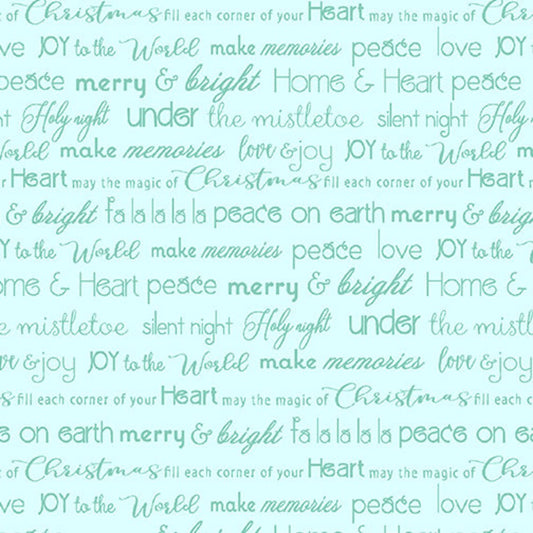 of Christmas fill each corner of your Heart may the magic of Christmas
ve JOY to the World make memories peace love JOY
peace merry & bright Home & Heart peace
t Holy night under the mistletoe silent night Holy
World make memories love & joy JOY to the World m
r Heart may the magic of Christmas fill each corner of your Heart
& bright fa la la la la peace on earth merry & brig
Y to the World make memories peace love JOY to the
ome & Heart peace merry & bright Home &
e mistletoe silent night Holy night under the mistl
ve & joy JOY to the World make memories love & joy
s fill each corner of your Heart may the magic of Christmas fill each c
e on earth merry & bright fa la la la la peace on ea
c of Christmas fill each corner of your Heart may the magic of Chr
ve JOY to the World make memories peace love JOY